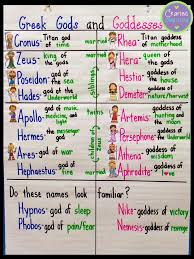 Greek Gods and Goddesses
Cronus- Titan god of time married Rhea- Titan goddess of motherhood
Zeus- king of the gods married Hera- goddess of
Poseidon- god of sea Hestia- goddess of hearth/home
Hades- god of siblings Demeter- goddess of nature/harvest
Apollo- god of music, Artemis- goddess of hunting
Hermes- messenger god children of Zeus Athena- goddess of wisdom
Ares- god of war
Hephaestus- god of married Aphrodite- goddess of love
Do these names look familiar?
Hypnos- god of sleep Nike- goddess of victory
Phobos- god of pain/fear Nemesis- goddess of revenge